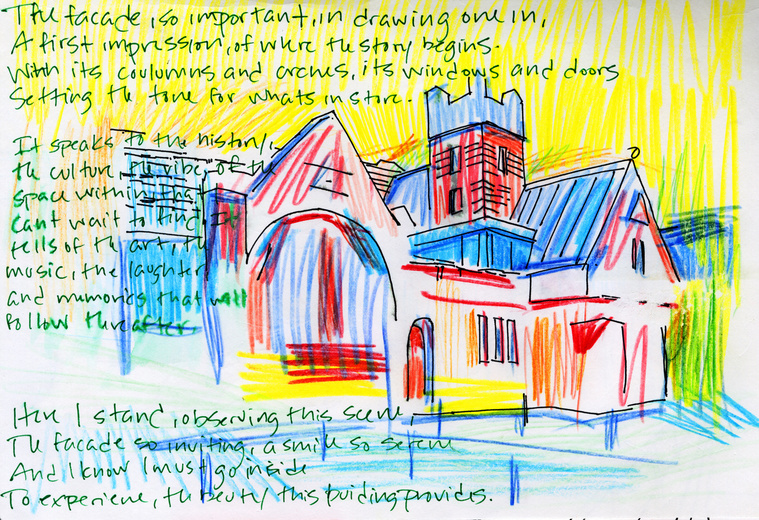 The facade, so important, in drawing one in,
A first impression, of where the story begins.
With its coulumns and arches, its windows and doors
Setting the tone for whats in store.
It speaks to the history,
the culture, the vibe, of the
space within that
cant wait to find. It
tells of the art, the
music, the laughter
and memories that will
follow thereafter
Here I stand, observing this scene
The facade so inviting, a smile so serene
And I know I must go inside
To experience, the beuty this buiding provides.